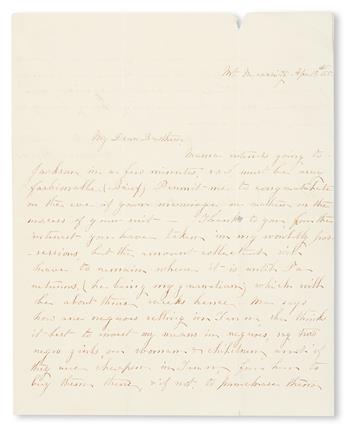 Apr 19th 55.
My Dear Brother
Mama intends going to
Jackson in a few minutes, so I must be very
fashionable, (Brief) Permit me to congratulate
on the eve of your marriage, or rather on the
success of your suit — Thanks to you for the
interest you have taken in my worldly pos-
sessions, but the amount collected will
have to remain where it is until Pa
returns, (he being my guardian) which will
be about three weeks hence. Ma says
how are negroes selling in Tenn, she thinks
it best to invest my means in negroes, say two
negro girls, or woman & children and if
they are cheaper in Tenn, for him to
buy them there, & if not, to purchase them